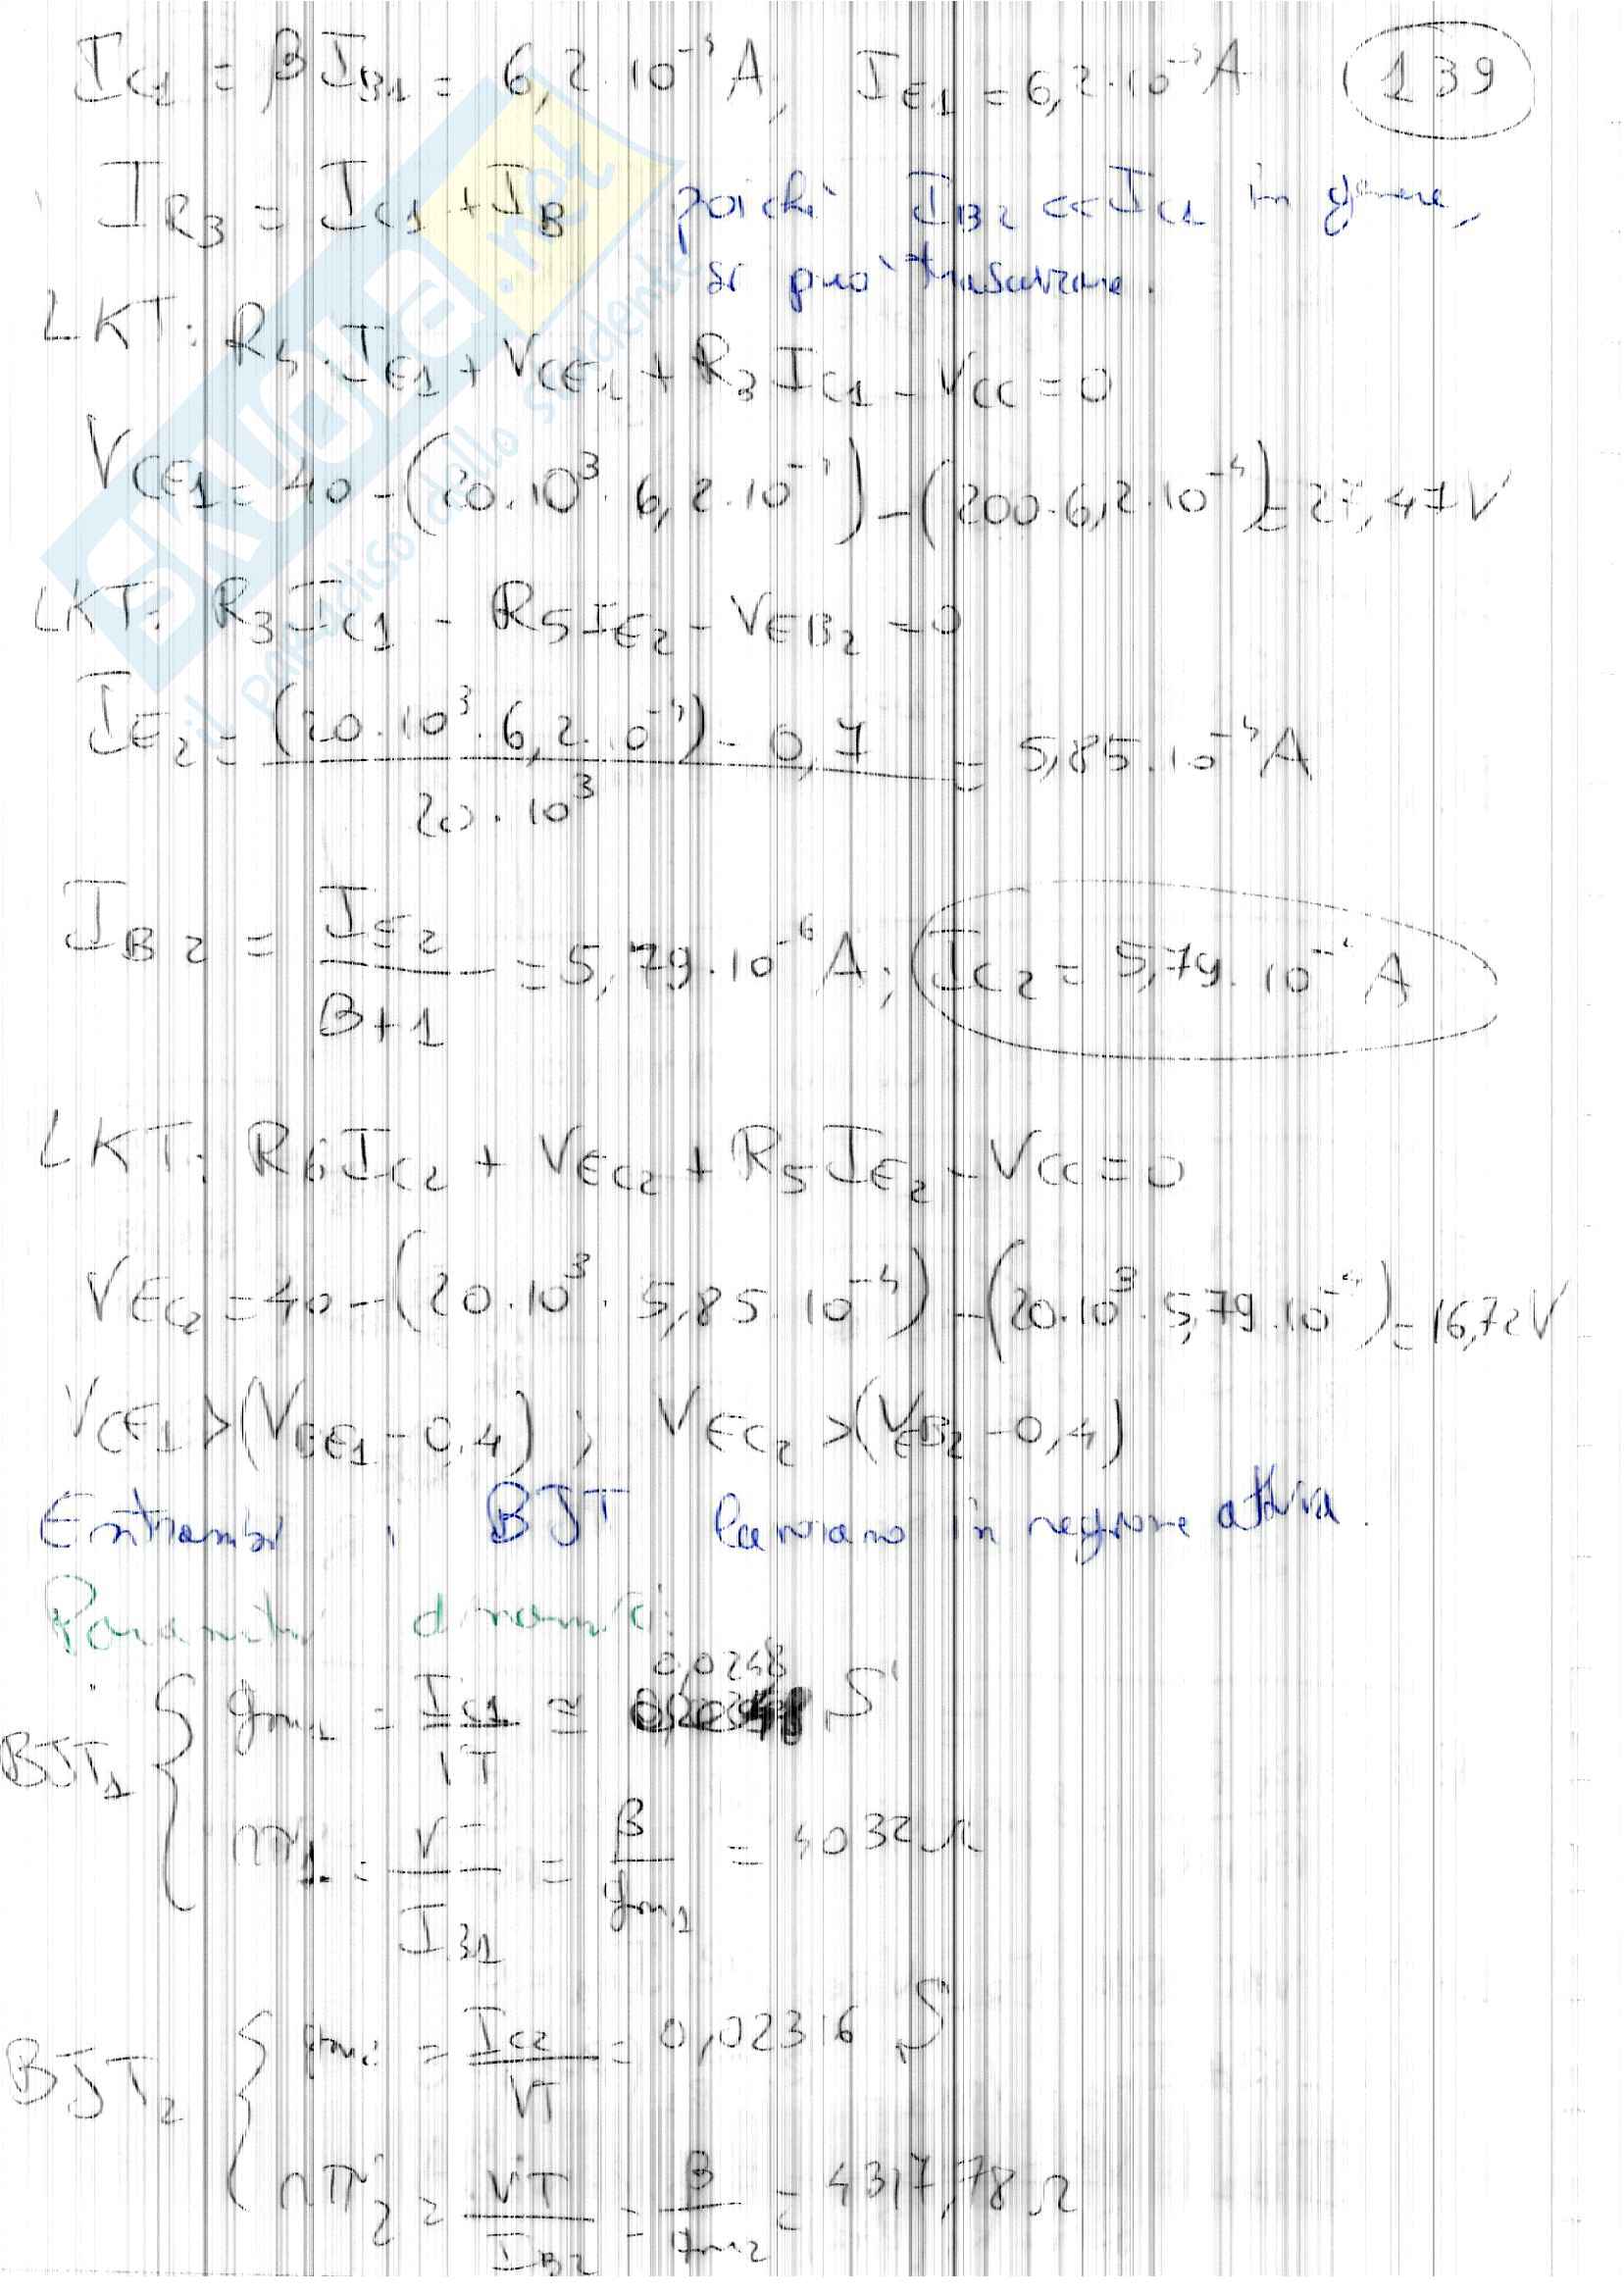 I_C1 = βI_B1 = 6,2·10^-4 A, I_E1 = 6,2·10^-4 A 139
I_R3 = I_C1 + I_B poiché I_B2 << I_C1 in genere,
si può trascurare.
LKT: R_4·I_E1 + V_CE1 + R_3 I_C1 - V_CC = 0
V_CE1 = 40 - (20·10^3·6,2·10^-4) - (200·6,2·10^-4) = 27,47 V
LKT: R_3 I_C1 - R_5 I_E2 - V_EB2 = 0
I_E2 = ((20·10^3·6,2·10^-4) - 0,7) / (20·10^3) = 5,85·10^-4 A
I_B2 = I_E2 / (β+1) = 5,79·10^-6 A; I_C2 = 5,79·10^-4 A
LKT: R_6 I_C2 + V_EC2 + R_5 I_E2 - V_CC = 0
V_EC2 = 40 - (20·10^3·5,85·10^-4) - (20·10^3·5,79·10^-4) = 16,72 V
V_CE1 > (V_BE1 - 0,4); V_EC2 > (V_EB2 - 0,4)
Entrambi i BJT lavorano in regione attiva.
Parametri dinamici:
BJT_1 { g_m1 = I_C1 / VT ≅ 0,0248 S
rπ_1 = VT / I_B1 = β / g_m1 = 4032 Ω
BJT_2 { g_m2 = I_C2 / VT = 0,02316 S
rπ_2 = VT / I_B2 = β / g_m2 = 4317,78 Ω
SKUOLA.net
il paradiso dello studente